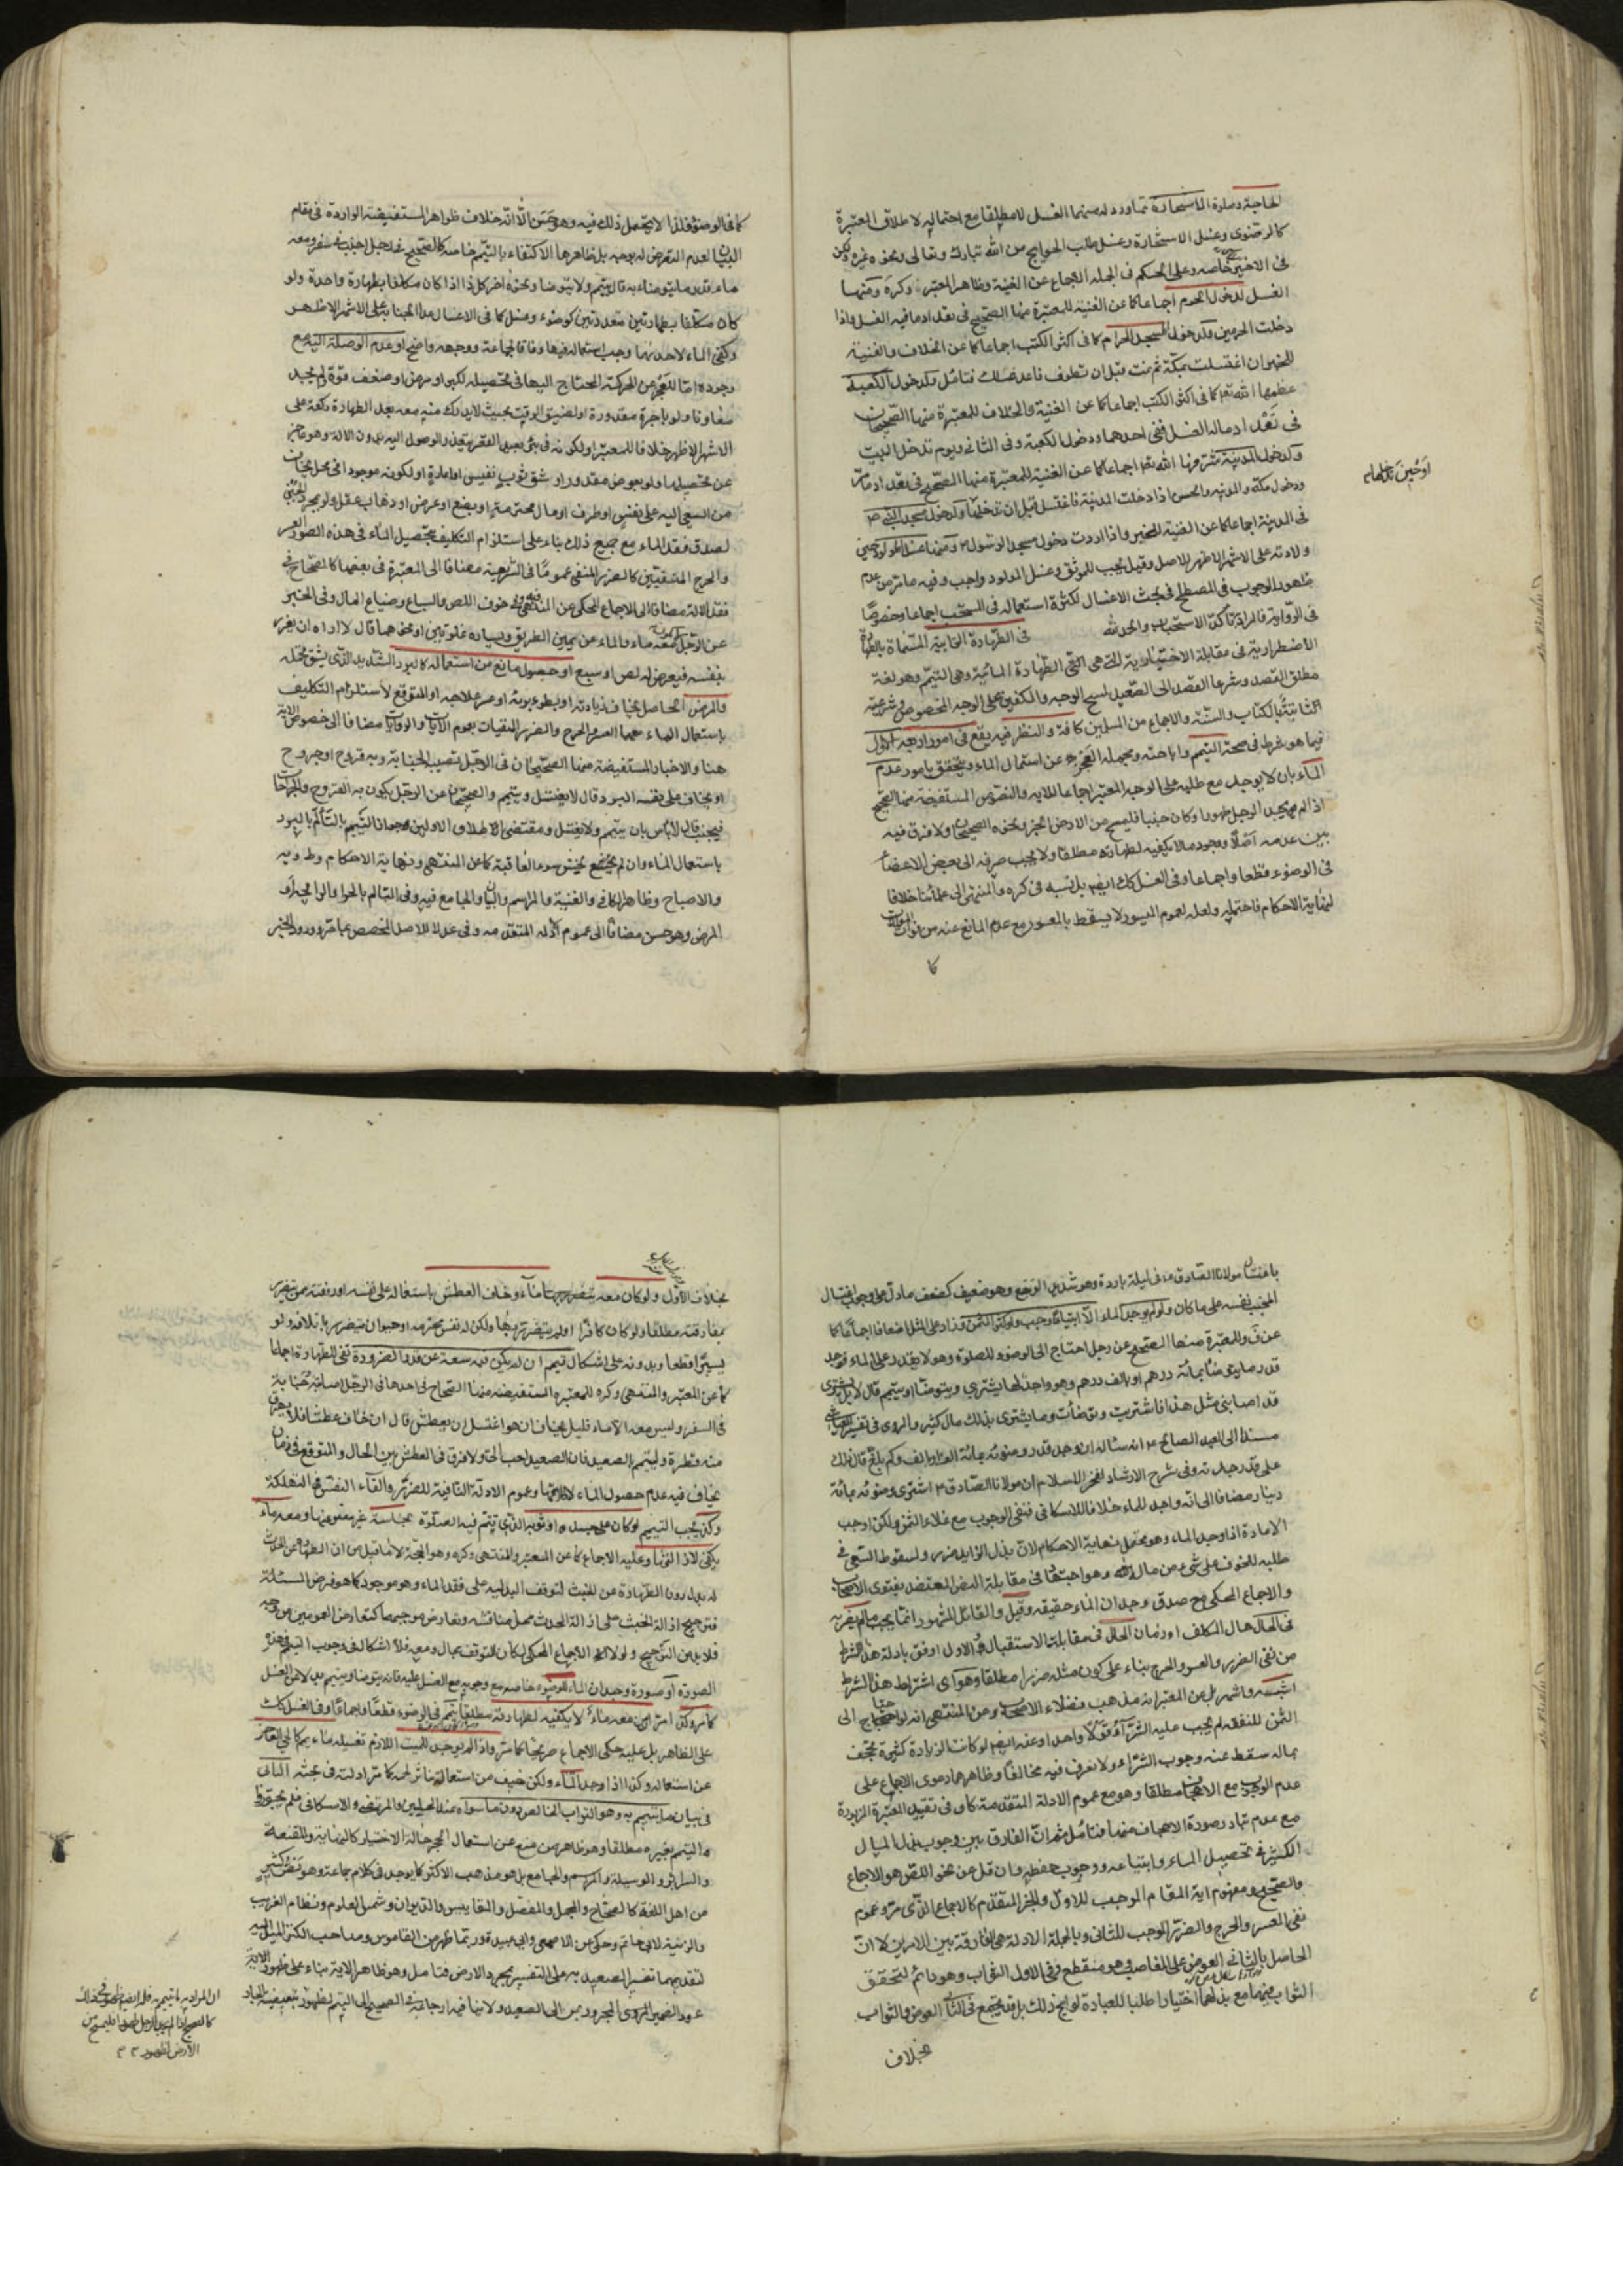 كالرضوي وغسل الاستخارة وغسل طلب الحوايج من الله تبارك وتعالى ونحوه غيره ولكن
في الاخير خاصه وعلى الحكم في الجمله الاجماع عن الغنية وظاهر المعتبر وكره ومنها
الغسل لدخول الحرم اجماعا كما عن الغنية للمعتبرة منها الصحيح في تعداد ما فيه الغسل واذا
دخلت الحرمين ولدخول المسجد الحرام كما في اكثر الكتب اجماعا كما عن الخلاف والغنية
للخبر وان اغتسلت بمكة ثم نمت قبل ان تطوف فاعد غسلك فتامل ولدخول الكعبة
عظمها الله تعم كما في اكثر الكتب اجماعا كما عن الغنية والخلاف للمعتبرة منها الصحيحان
في تعداد محاله الغسل ففي احدهما ودخول الكعبة وفي الثاني ويوم تدخل البيت
ولدخول المدينة شرفها الله تعم اجماعا كما عن الغنية للمعتبرة منها الصحيح في تعداد
ودخول مكة والمدينه والحسن اذا دخلت المدينة فاغتسل قبل ان تدخلها ولدخول مسجد النبي ص
اوحين تدخلها
في المدينة اجماعا كما عن الغنية للخبر واذا اردت دخول مسجد الرسول ومنها غسل المولود حين
ولادته على الاشهر الاظهر للاصل وقيل يجب للموثق وغسل المولود واجب وفيه ما مر من عدم
ظهور الوجوب في المصطلح في بحث الاغسال لكثرة استعماله في المستحب اجماعا وخصوصا
في الطهارة الترابية المسماة بالطهارة
الاضطرارية في مقابلة الاختيارية التي هي الطهارة المائية وهي التيمم وهو لغة
مطلق القصد وشرعا القصد الى الصعيد لمسح الوجه والكفين على الوجه المخصوص وشرعيته
ثابتة بالكتاب والسنة والاجماع من المسلمين كافة والنظر فيه يقع في امور اربعة الاول
فيما هو شرط في صحة التيمم واباحته ومجمله العجز عن استعمال الماء ويتحقق بامور عدم
الماء بان لا يوجد مع طلبه على الوجه المعتبر اجماعا للاية والنصوص المستفيضة منها الصحيح
اذا لم يجد الرجل طهورا وكان جنبا فليمسح من الارض الخبر ونحوه الصحيحان ولا فرق فيه
بين عدمه اصلا ووجود ما لا يكفيه لطهارته مطلقا ولا يجب صرفه الى بعض الاعضاء
في الوضوء قطعا واجماعا وفي الغسل كك ايضا بل نسبه في كره والمنتهى الى علمائنا خلافا
لنهاية الاحكام فاحتمله ولعله لعموم الميسور لا يسقط بالمعسور مع عدم المانع عنه من فوات الموالات
كما
كما في الوضوء فلذا لا يحتمل ذلك فيه وهو حسن الا انه خلاف ظواهر المستفيضة الواردة في مقام
البيان لعدم التعرض له بوجه بل ظاهرها الاكتفاء بالتيمم خاصة كالصحيح في رجل اجنب في سفر ومعه
ماء قدر ما يتوضاء به قال يتيمم ولا يتوضا ونحوه اخر كل ذا اذا كان مكلفا بطهارة واحدة ولو
كان مكلفا بطهارتين متعددتين كوضوء وغسل كما في الاغسال عدا الجنابة على الاشهر الاظهر
وكفى الماء لاحدهما وجب استعماله فيها وفاقا لجماعة ووجهه واضح او عدم الوصلة اليه مع
وجوده اما للعجز عن الحركة المحتاج اليها في تحصيله لكبر او مرض او ضعف قوة ولم يجد
معاونا ولو باجرة مقدورة او لضيق الوقت بحيث لا يدرك منه معه بعد الطهارة ركعة على
الاشهر الاظهر خلافا للمعتبر او لكونه في بئر بعيد القعر يتعذر الوصول اليه بدون الالة وهو عاجز
عن تحصيلها ولو بعوض مقدور او شق ثوب نفيس او اعارة او لكونه موجودا في محل يخاف
من السعي اليه على نفس او طرف او مال محترمة او بضع او عرض او ذهاب عقل ولو بمجرد الجبن
لصدق فقد الماء مع جميع ذلك بناء على استلزام التكليف بتحصيل الماء في هذه الصور العسر
والحرج المنفيين كالضرر المنفي عموما في الشريعة مضافا الى المعتبرة في بعضها كالصحاح في
فقد الالة مضافا الى الاجماع المحكي عن المنتهى وفي خوف اللص والسباع وضياع المال وفي الخبر
عن الرجل لا يكون معه ماء والماء عن يمين الطريق ويساره غلوتين او نحوهما قال لا امره ان يغرر
بنفسه فيعرض له لص او سبع او حصول مانع من استعماله كالبرد الشديد الذي يشق تحمله
والمرض الحاصل يخاف زيادته او بطوء برئه او عسر علاجه او المتوقع لاستلزام التكليف
باستعمال الماء معهما العسر والحرج والضرر المنفيات بعموم الايات والروايات مضافا الى خصوص الاية
هنا والاخبار المستفيضة منها الصحيحان في الرجل تصيبه الجنابة وبه قروح او جروح
او يخاف على نفسه البرد قال لا يغتسل ويتيمم والصحيحان عن الرجل يكون به القروح والجراحات
فيجنب قال لا باس بان يتيمم ولا يغتسل ومقتضى الاطلاق الاولين جواز التيمم بالتالم بالبرد
باستعمال الماء وان لم يخش سوء العاقبة كما عن المنتهى ونهاية الاحكام وط ويه
والاصباح وظاهر الكافي والغنية والمراسم والبيان والجامع فيه وفي التالم بالحر
المرض وهو حسن مضافا الى عموم الادلة المتقدمة وفي عدلا للاصل المخصص بما مر وورود الخبر
باغتسال مولانا الصادق ع في ليلة باردة وهو شديد الوجع وهو ضعيف كضعف ما دل على وجوب اغتسال
المجنب نفسه على ما كان ولو لم يوجد الماء الا ابتياعا وجب ولو كثر الثمن وزاد على المثل اضعافا اجماعا كما
عن ف وللمعتبرة منها الصحيح عن رجل احتاج الى الوضوء للصلوة وهو لا يقدر على الماء فوجد
قدر ما يتوضأ بمائة درهم او بالف درهم وهو واجد لها يشتري ويتوضأ او يتيمم قال لا بل يشتري
قد اصابني مثل هذا فاشتريت وتوضات وما يشترى بذلك مال كثير والمروي في تفسير العياشي
مسندا الى العبد الصالح ع انه ساله ان وجد قدر وضوئه بمائة الف او الف وكم بلغ قال ذلك
على قدر جدته وفي شرح الارشاد لفخر الاسلام ان مولانا الصادق ع اشترى وضوئه بمائة
دينار مضافا الى انه واجد للماء خلافا للاسكافي فنفى الوجوب مع غلاء الثمن ولكن اوجب
الاعادة اذا وجد الماء وهو محتمل نهاية الاحكام لان بذل الزايد ضرر ولسقوط السعي في
طلبه للخوف على شئ من ماله وهو اجتهاد في مقابلة النص المعتضد بفتوى الاصحاب
والاجماع المحكي مع صدق وجدان الماء حقيقه وقيل والقائل المشهور انما يجب ما لم يضر به
في الحال حال المكلف او زمان الحال في مقابلة الاستقبال والاول اوفق بادلة هذا الشرط
من نفي الضرر والعسر والحرج بناء على كون مثله ضررا مطلقا وهو اي اشتراط هذا الشرط
اشبه واشهر بل عن المعتبر انه مذهب فضلاء الاصحاب وعن المنتهى انه لو احتاج الى
الثمن للنفقه لم يجب عليه الشراء قولا واحدا وعنه ايضا لو كانت الزيادة كثيرة تجحف
بماله سقط عنه وجوب الشراء ولا نعرف فيه مخالفا وظاهرهما دعوى الاجماع على
عدم الوجوب مع الاجحاف مطلقا وهو مع عموم الادلة المتقدمة كاف في تقييد المعتبرة المزبورة
مع عدم تبادر صورة الاجحاف منها فتامل ثم ان الفارق بين وجوب بذل المال
الكثير في تحصيل الماء وابتياعه ووجوب حفظه وان قل عن نحو اللص هو الاجماع
والصحيح ومفهوم اية المقام الموجب للاول والخبر المتقدم كالاجماع الذي مر وعموم
نفي العسر والحرج والضرر الموجب للثاني وبالجملة الادلة هي الفارقة بين الامرين لا ان
الحاصل بالثاني العوض على الغاصب وهو منقطع وفي الاول الثواب وهو دائم لتحقق
الثواب فيهما مع بذلهما اختيارا طلبا للعبادة لو ابيح ذلك بل قد يجتمع في الثاني العوض والثواب
بخلاف
بخلاف الاول ولو كان معه ماء وخاف العطش باستعماله على نفسه او رفقته ممن يتضرر
بمفارقته مطلقا ولو كان كافرا او لم يتضرر بها ولكن له نفس محترمه او حيوان يتضرر باتلافه ولو
يسيرا قطعا وبدونه على اشكال تيمم ان لم يكن فيه سعة عن قدر الضرورة تفي للطهارة اجماعا
كما عن المعتبر والمنتهى وكره للمعتبرة المستفيضة منها الصحاح في احدها في الرجل اصابته جنابة
في السفر وليس معه الا ماء قليل يخاف ان هو اغتسل ان يعطش قال ان خاف عطشا فلا يهرق
منه قطرة وليتيمم بالصعيد فان الصعيد احب الي ولا فرق في العطش بين الحال والمتوقع في زمان
يخاف فيه عدم حصول الماء لاطلاقها وعموم الادلة النافية للضرر والقاء النفس في التهلكة
وكذا يجب التيمم لو كان على جسده او ثوبه الذي يتم فيه الصلوة نجاسة غير معفو عنها ومعه ماء
يكفي لازالتها وعليه الاجماع كما عن المعتبر والمنتهى وكره وهو الحجة لا ما قيل من ان الطهارة عن الحدث
له بدل دون الطهارة عن الخبث لتوقف البدلية على فقد الماء وهو موجود كما هو فرض المسئلة
فترجيح ازالة الخبث على ازالة الحدث محل مناقشه وتعارض موجبهما كتعارض العمومين من وجه
فلا بد من الترجيح ولولا الاجماع المحكي لكان للتوقف مجال ومعه فلا اشكال في وجوب التيمم في هذه
الصورة او صورة وجدان الماء للوضوء خاصه مع وجوبه مع الغسل عليه فانه يتوضا ويتيمم بدلا عن الغسل
كما مر وكذا من معه ماء لا يكفيه لطهارته مطلقا يتيمم في الوضوء قطعا واجماعا وفي الغسل كك
على الظاهر بل عليه حكى الاجماع صريحا كما مر واذا لم يوجد للميت اللازم تغسيله ماء يمم كالحي العاجز
عن استعماله وكذا اذا وجد الماء ولكن خيف من استعماله تناثر لحمه كما مر ادلته في بحثه الثاني
في بيان ما يتيمم به وهو التراب الخالص دون ما سواه عند الحلبيين والمرتضى والاسكافي فلم يجوزوا
التيمم بغيره مطلقا وهو ظاهر من منع عن استعمال الحجر حالة الاختيار كالنهاية والمقنعة
والسرائر والوسيلة والمراسم والجامع بل هو مذهب الاكثر كما يوجد في كلام جماعة وهو نص كثير
من اهل اللغة كالصحاح والمجمل والمفصل والمقاييس والديوان وشمس العلوم ونظام الغريب
والزينة لابي حاتم وحكي عن الاصمعي وابي عبيدة وربما ظهر من القاموس وصاحب الكنز الميل اليه
لتقديمهما تفسير الصعيد به على التفسير بمجرد الارض فتامل وهو ظاهر الاية بناء على ظهور
عود الضمير المجرور بمن الى الصعيد ولا ينافيه ارجاعه في الصحيح الى التيمم لظهور تبعيضية الجار
ان المراد به ما يتيمم به فلم
كالصحيح اذا لم يجد الرجل طهورا فليمسح من
الارض